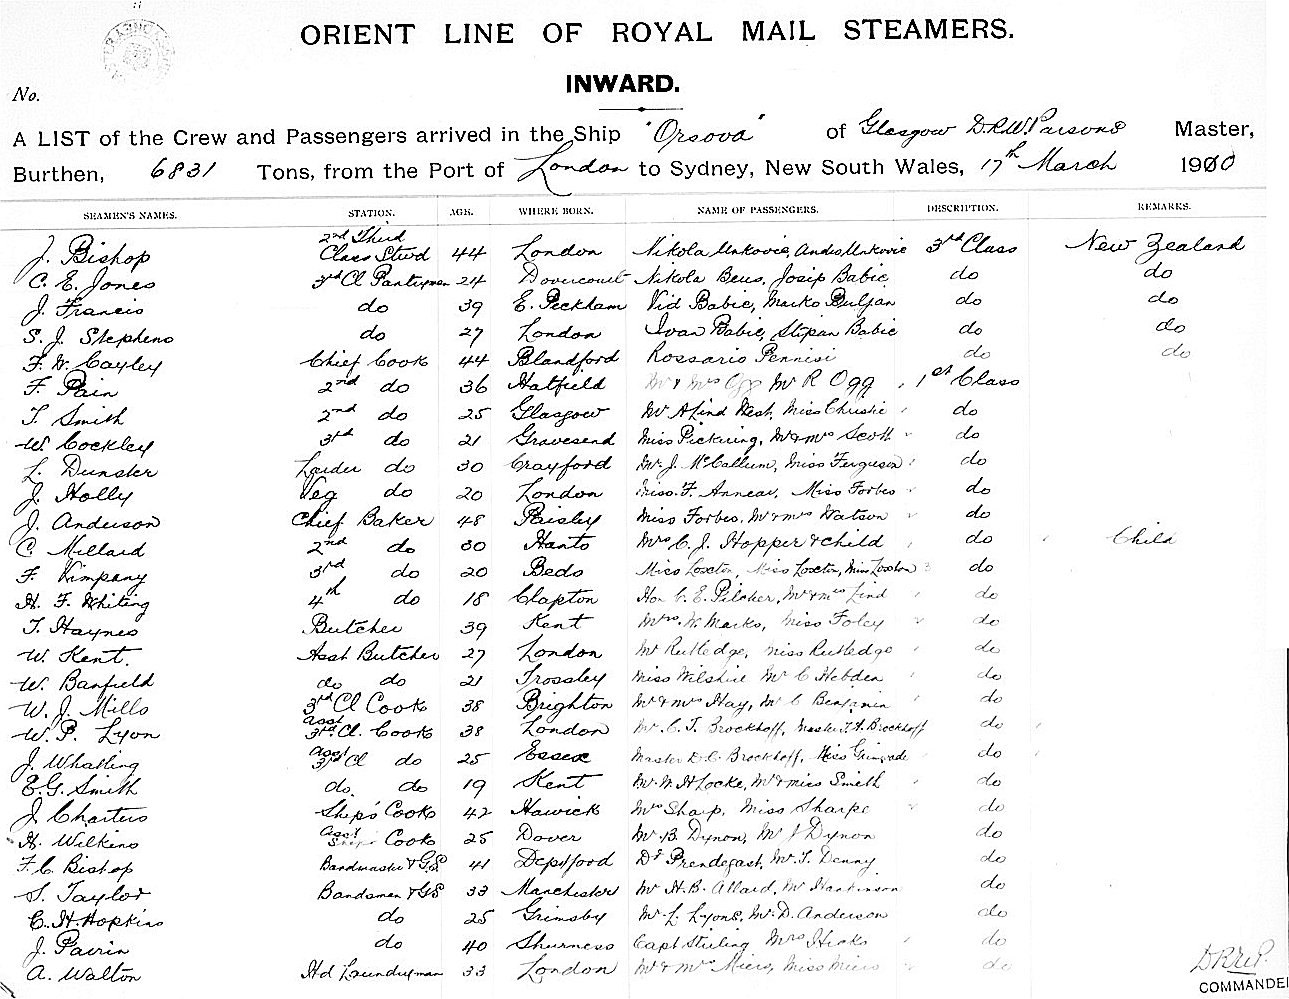 ORIENT LINE OF ROYAL MAIL STEAMERS.
INWARD.
No.
A LIST of the Crew and Passengers arrived in the Ship "Orsova" of Glasgow D.R.W. Parsons Master,
Burthen, 6831 Tons, from the Port of London to Sydney, New South Wales, 17th March 1900
SEAMEN'S NAMES. STATION. AGE. WHERE BORN. NAME OF PASSENGERS. DESCRIPTION. REMARKS.
J. Bishop 2nd Third Class Stwd 44 London Nikola Unkovic, Andro Unkovic 3rd Class New Zealand
C. E. Jones 3rd Cl Pantryman 24 Dovercourt Nikola Beus, Josip Babic do do
J. Francis do 39 E. Peckham Vid Babic, Marko Buljan do do
S. J. Stephens do 27 London Ivan Babic, Stipan Babic do do
F. W. Cayley Chief Cook 44 Blandford Rossario Pennisi do do
F. Pain 2nd do 36 Hatfield Mr & Mrs Ogg Mr R Ogg 1st Class
T. Smith 2nd do 25 Glasgow Mr A Lind West, Miss Christie do
W. Cockley 3rd do 21 Gravesend Miss Pickering, Mr & Mrs Scott do
L. Dunster Larder do 30 Crayford Mr. J. McCallum, Miss Ferguson do
J. Holly Veg do 20 London Miss. F. Annear, Miss Forbes do
J. Anderson Chief Baker 48 Paisley Miss Forbes, Mr & Mrs Watson do
C. Millard 2nd do 30 Hants Mrs C. J. Hopper & child do Child
F. Kimpany 3rd do 20 Beds Miss Loxton, Miss Loxton, Miss Loxton do
H. F. Whiting 4th do 18 Clapton Hon C. E. Pilcher, Mr & Mrs Lind do
T. Haynes Butcher 39 Kent Mrs. W. Marks, Miss Foley do
W. Kent. Asst Butcher 27 London Mr Rutledge, Miss Rutledge do
W. Banfield do do 21 Trossley Miss Wilshire Mr C Hebden do
W. J. Mills 3rd Cl Cook 38 Brighton Mr & Mrs Hay, Mr C Benjamin do
W. P. Lyon Asst 3rd Cl. Cook 38 London Mr. C. T. Brockhoff, Master T. A. Brockhoff do
J. Whatling Asst 3rd Cl do 25 Essex Master D. C. Brockhoff, Miss Grimwade do
E. G. Smith do. do 19 Kent Mr. W. H Locke, Mr & Miss Smith do
J. Charters Ship's Cook 42 Hawick Mrs Sharp, Miss Sharpe do
H. Wilkins Asst Ship's Cook 25 Dover Mr. B. Dynon, Mr J Dynon do
F. C. Bishop Bandmaster & G.S. 41 Deptford Dr Prendegast, Mr. T. Denny do
S. Taylor Bandsman & GS 33 Manchester Mr H. B. Allard, Mr Hankinson do
C. H. Hopkins do 25 Grimsby Mr. L. Lyons, Mr. D. Anderson do
J. Pairin do 40 Sheerness Capt Stirling Mrs Hicks do
A. Walton Hd Laundryman 33 London Mr & Mrs Miers, Miss Miers do
COMMANDER